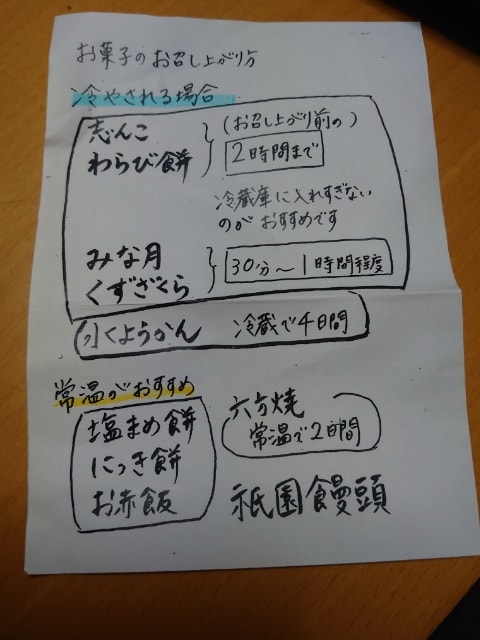 お菓子のお召し上がり方
冷やされる場合
志んこ
わらび餅
(お召し上がり前の)
2時間まで
冷蔵庫に入れすぎない
のがおすすめです
みな月
くずざくら
30分〜1時間程度
水ようかん 冷蔵で4日間
常温がおすすめ
塩まめ餅
にっき餅
お赤飯
六方焼
常温で2日間
祇園饅頭